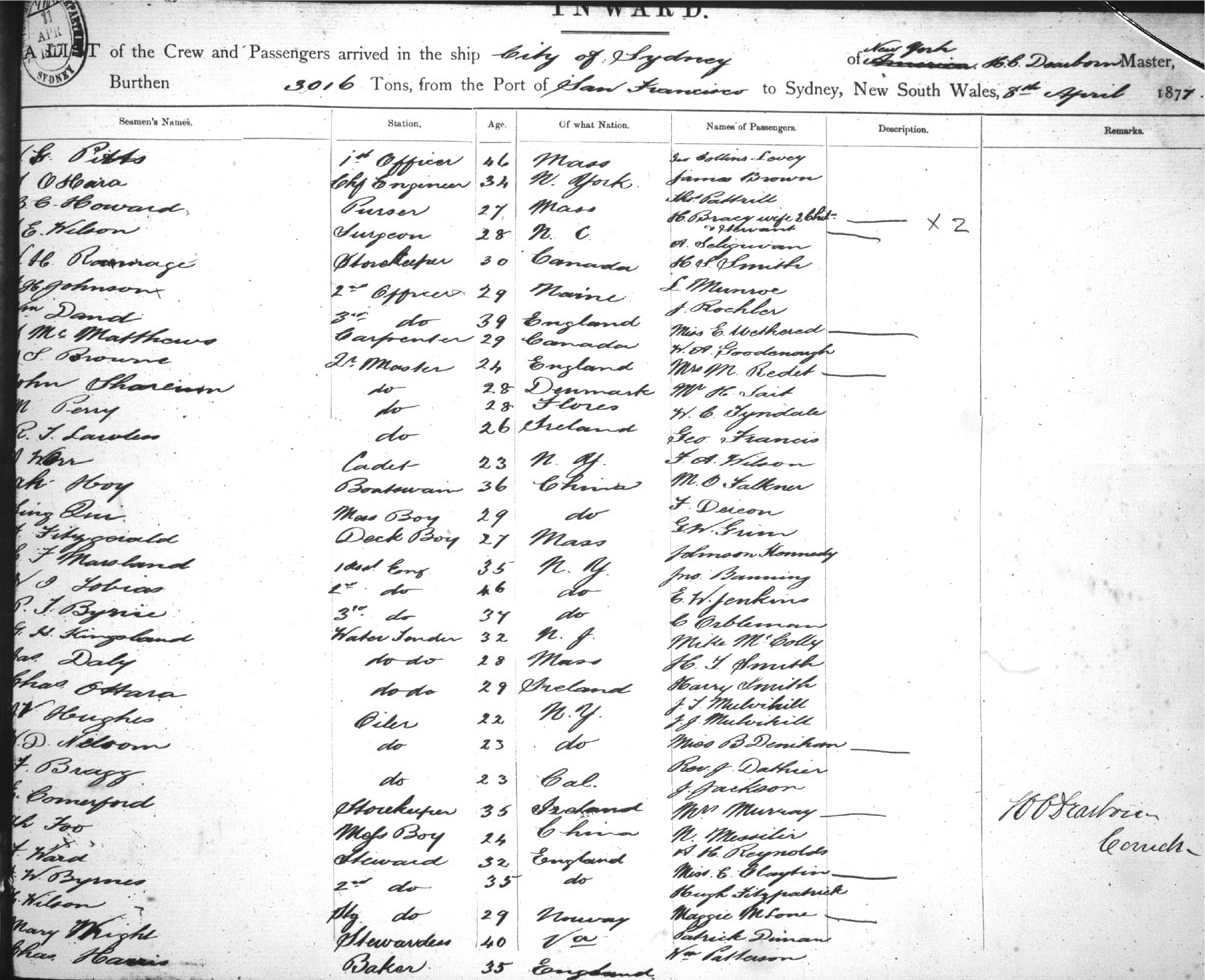 INWARD.
11
APR
SYDNEY
A LIST of the Crew and Passengers arrived in the ship City of Sydney of New York America H.C. Dearborn Master,
Burthen 3016 Tons, from the Port of San Francisco to Sydney, New South Wales, 8th April 1877.
Seamen's Names. Station. Age. Of what Nation. Names of Passengers. Description. Remarks.
G Pitts 1st Officer 46 Mass Collins Levey
O'Hara Chf Engineer 34 N. York James Brown
C. Howard Purser 27 Mass Thos Pattrill
E. Wilson Surgeon 28 N. C. H. Bracy wife 2 Chil & Servant X 2
H. Ramage Storekeeper 30 Canada A. Seligman
H Johnson 2nd Officer 29 Maine H S Smith
Dand 3rd do 39 England L Munroe
McMatthews Carpenter 29 Canada J. Rochler
S Browne Qr Master 24 England Miss E. Wethered
John do 28 Denmark W. A. Goodenough
M Perry do 28 Flores Mrs M. Redet
R. T. Lawless do 26 Ireland Mr H. Tait
Cadet 23 N. Y. W. C. Tyndale
Ah Hoy Boatswain 36 China Geo Francis
Mess Boy 29 do F A. Wilson
Fitzgerald Deck Boy 27 Mass M. O Falkner
F Marsland 1 Asst Eng 35 N. Y. F.
Tobias 2nd do 46 do G W. Grim
P. F. Byrne 3rd do 37 do Johnson Kennedy
G. H. Kingsland Water Tender 32 N. J. Jno. Banning
Jas. Daly do do 28 Mass E. W. Jenkins
Chas O'Hara do do 29 Ireland C
W Hughes Oiler 22 N. Y. Mike McColly
D. do 23 do H. T Smith
F. Bragg do 23 Cal. Harry Smith
E. Comerford Storekeeper 35 Ireland J. T. Mulvihill
Ah Foo Mess Boy 24 China J J Mulvihill
F Ward Steward 32 England Miss B Denihan
W Byrnes 2nd do 35 do Rev. J. Dathier
Wilson do 29 Norway J. Jackson
Mary Wright Stewardess 40 Va Mrs Murray
Chas Harris Baker 35 England
N.
A H. Reynolds
Miss. E.
Hugh Fitzpatrick
Maggie
Patrick
Wm Patterson
H C Dearborn